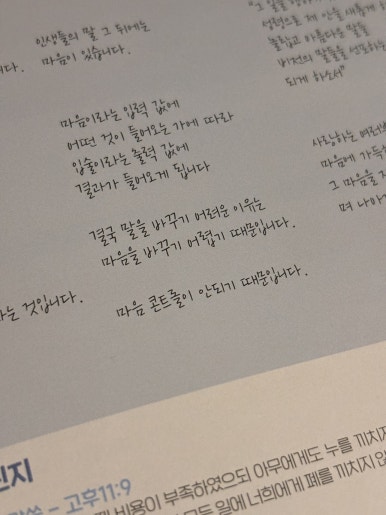 인생들의 말 그 뒤에는
마음이 있습니다.
마음이라는 입력 값에
어떤 것이 들어오는 가에 따라
입술이라는 출력 값에
결과가 들어오게 됩니다
결국 말을 바꾸기 어려운 이유는
마음을 바꾸기 어렵기 때문입니다.
마음 콘트롤이 안되기 때문입니다.
라는 것입니다.
놀랍고 아름다운 말들
비전의 말들을
되게 하소서"
사랑하는 여러분
마음에
그 마음을
며
- 고후11:9
비용이 부족하였으되 아무에게도 누를 끼치지
모든 일에 너희에게 폐를 끼치지 않